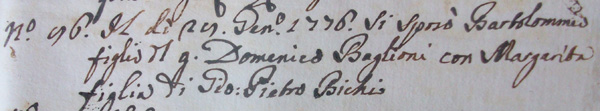 Nº 96. Il dì 29. Genº. 1776. Si sposò Bartolommeo
figlio del q. Domenico Baglioni con Margarita
figlia di Gio: Pietro Bichi